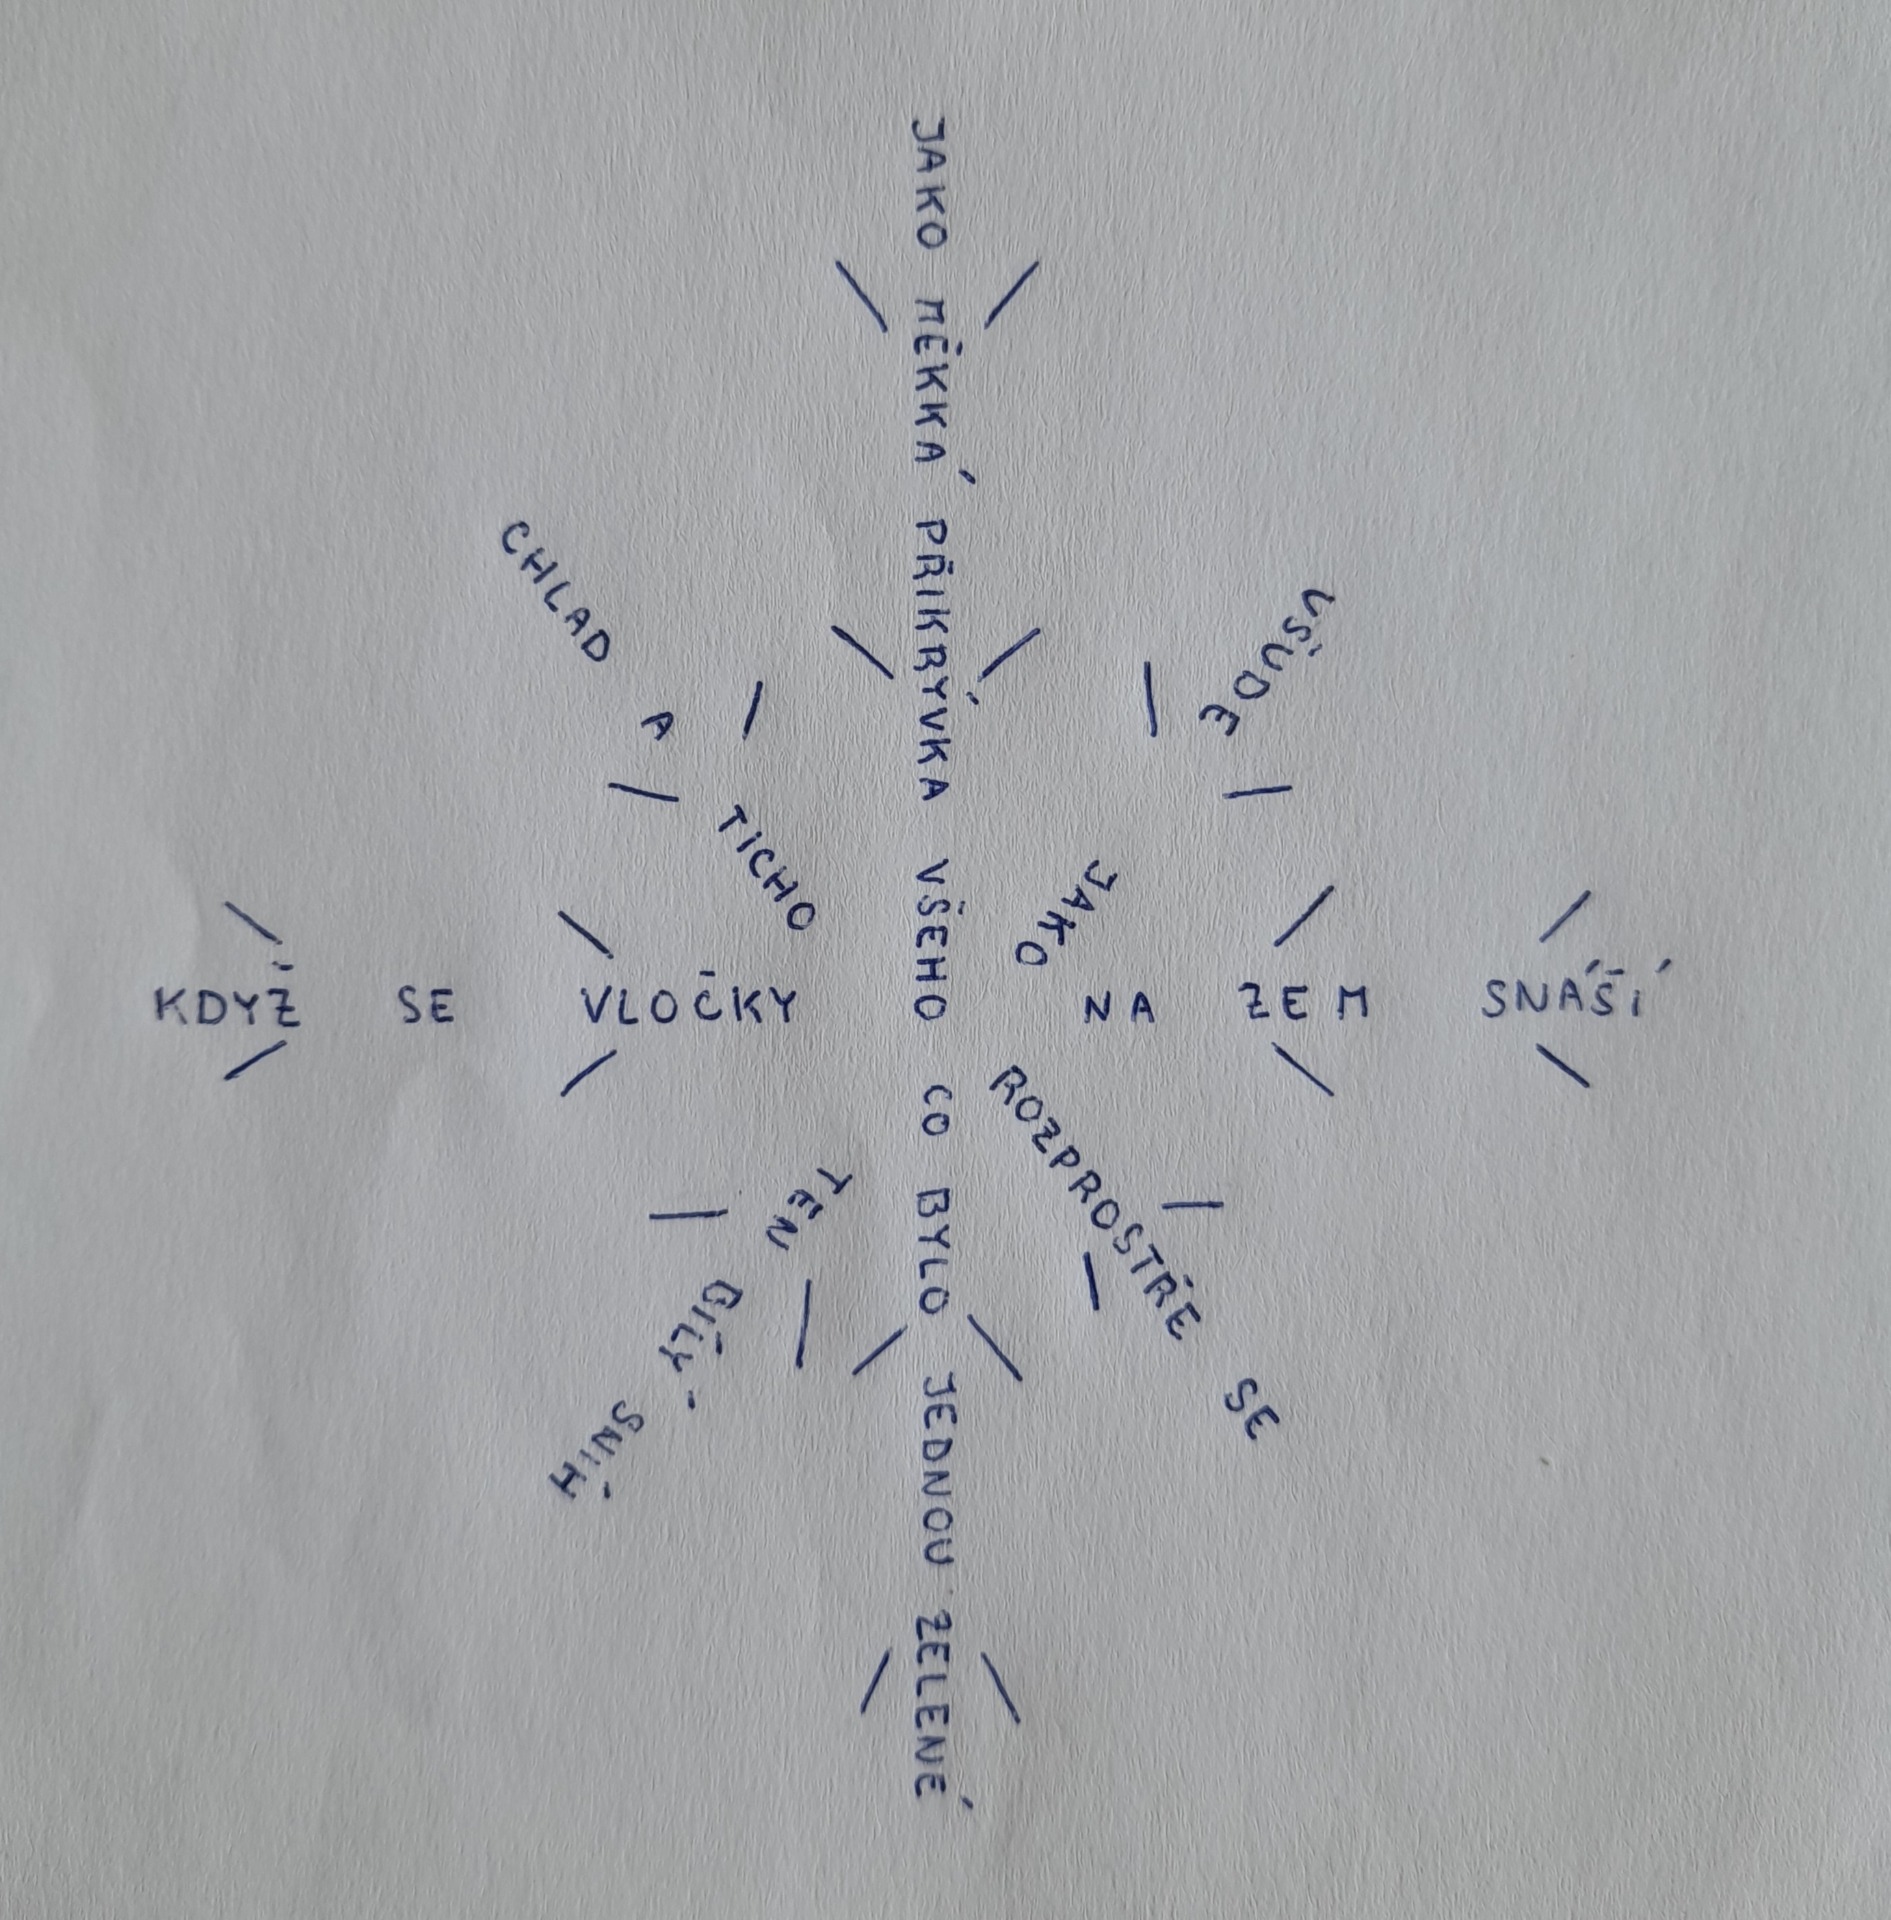 KDYŽ SE VLOČKY NA ZEM SNÁŠÍ
CHLAD A TICHO ROZPROSTŘE SE
VŠUDE JAKO TEN BÍLÝ SNÍH
JAKO MĚKKÁ PŘIKRÝVKA VŠEHO CO BYLO JEDNOU ZELENÉ